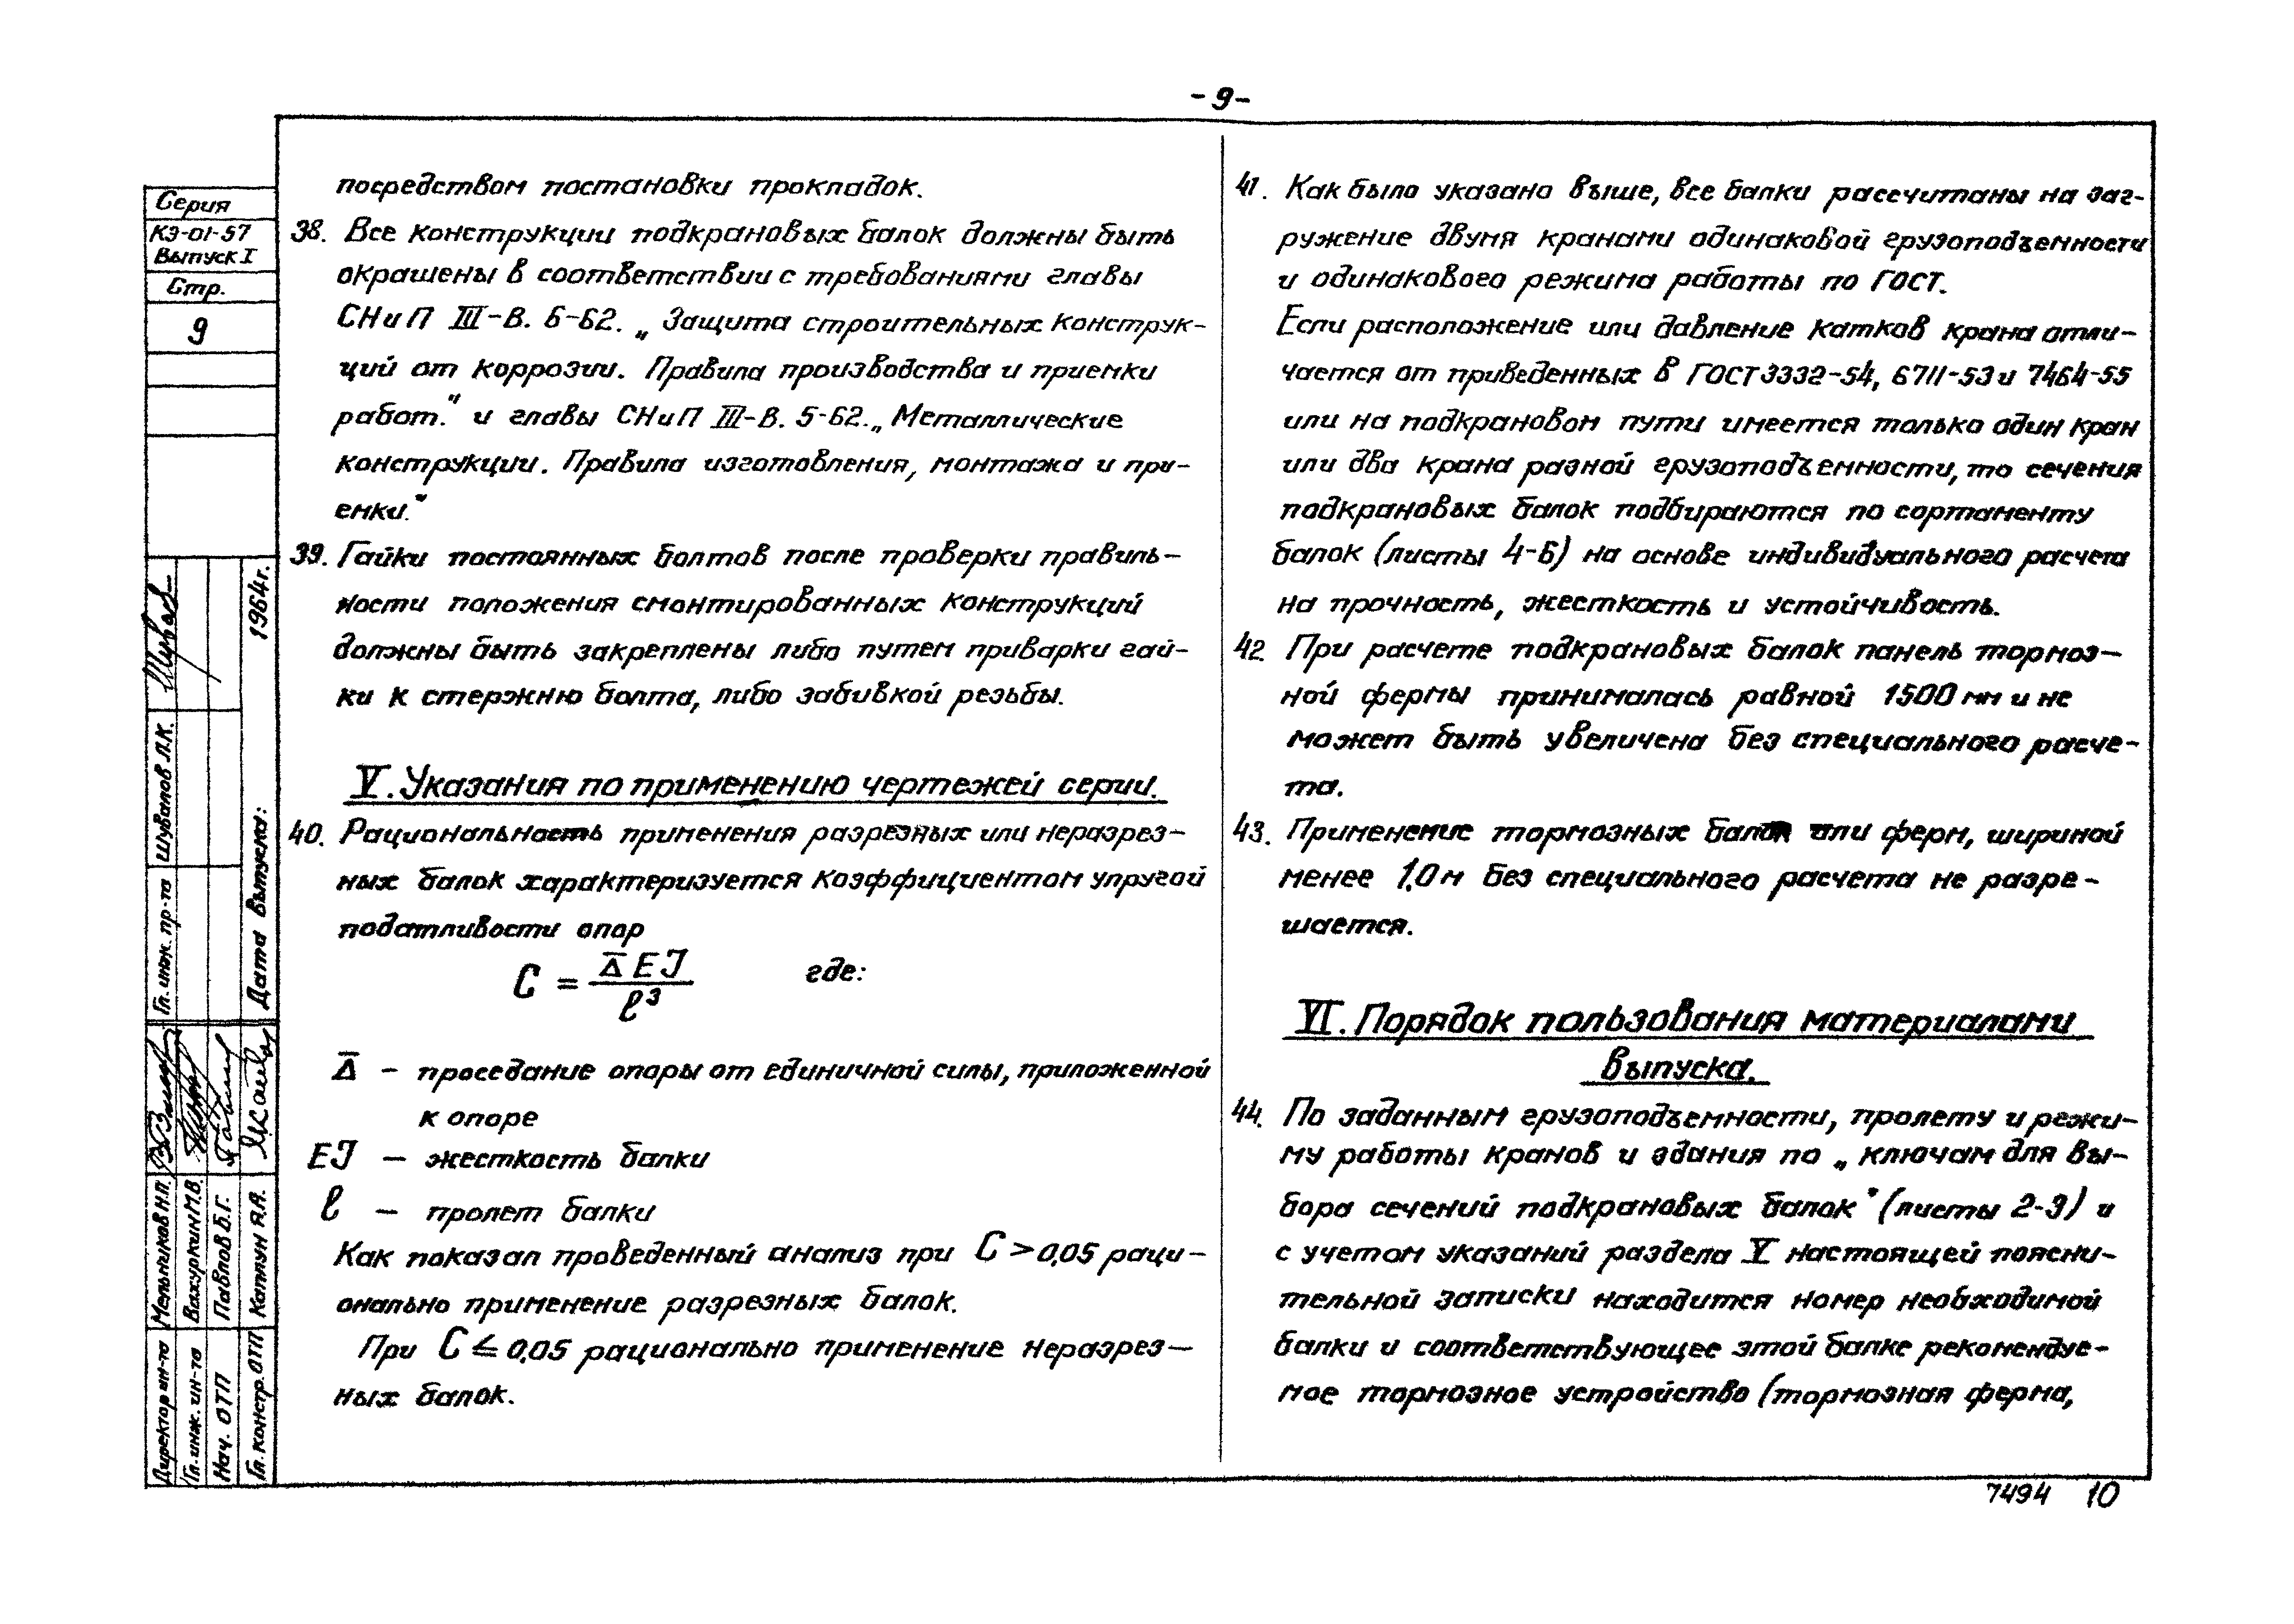 - 9 -
Серия
КЭ-01-57
Выпуск I
Стр.
9
1964г.
Дата выпуска:
Шувалов Л.К.
Гл. инж. пр-та
Мельников Н.П.
Вахуркин М.В.
Павлов Б.Г.
Каплун Я.А.
Директор ин-та
Гл. инж. ин-та
Нач. ОТП
Гл. констр. ОТП
посредством постановки прокладок.
38. Все конструкции подкрановых балок должны быть
окрашены в соответствии с требованиями главы
СНиП III-В. 6-62. „Защита строительных конструк-
ций от коррозии. Правила производства и приемки
работ.“ и главы СНиП III-В. 5-62. „Металлические
конструкции. Правила изготовления, монтажа и при-
емки.“
39. Гайки постоянных болтов после проверки правиль-
ности положения смонтированных конструкций
должны быть закреплены либо путем приварки гай-
ки к стержню болта, либо забивкой резьбы.
V. Указания по применению чертежей серии.
40. Рациональность применения разрезных или неразрез-
ных балок характеризуется коэффициентом упругой
податливости опор
C = Δ̅ EJ / ℓ³ где:
Δ̅ – проседание опоры от единичной силы, приложенной
к опоре
EJ – жесткость балки
ℓ – пролет балки
Как показал проведенный анализ при C > 0,05 раци-
онально применение разрезных балок.
При C ≤ 0,05 рационально применение неразрез-
ных балок.
41. Как было указано выше, все балки рассчитаны на заг-
ружение двумя кранами одинаковой грузоподъемности
и одинакового режима работы по ГОСТ.
Если расположение или давление катков крана отли-
чается от приведенных в ГОСТ 3332-54, 6711-53 и 7464-55
или на подкрановом пути имеется только один кран
или два крана разной грузоподъемности, то сечения
подкрановых балок подбираются по сортаменту
балок (листы 4-6) на основе индивидуального расчета
на прочность, жесткость и устойчивость.
42. При расчете подкрановых балок панель тормоз-
ной фермы принималась равной 1500 мм и не
может быть увеличена без специального расче-
та.
43. Применение тормозных балок или ферм, шириной
менее 1,0 м без специального расчета не разре-
шается.
VI. Порядок пользования материалами
выпуска.
44. По заданным грузоподъемности, пролету и режи-
му работы кранов и здания по „ключам для вы-
бора сечений подкрановых балок“ (листы 2-3) и
с учетом указаний раздела V настоящей поясни-
тельной записки находится номер необходимой
балки и соответствующее этой балке рекомендуе-
мое тормозное устройство (тормозная ферма,
7494 10